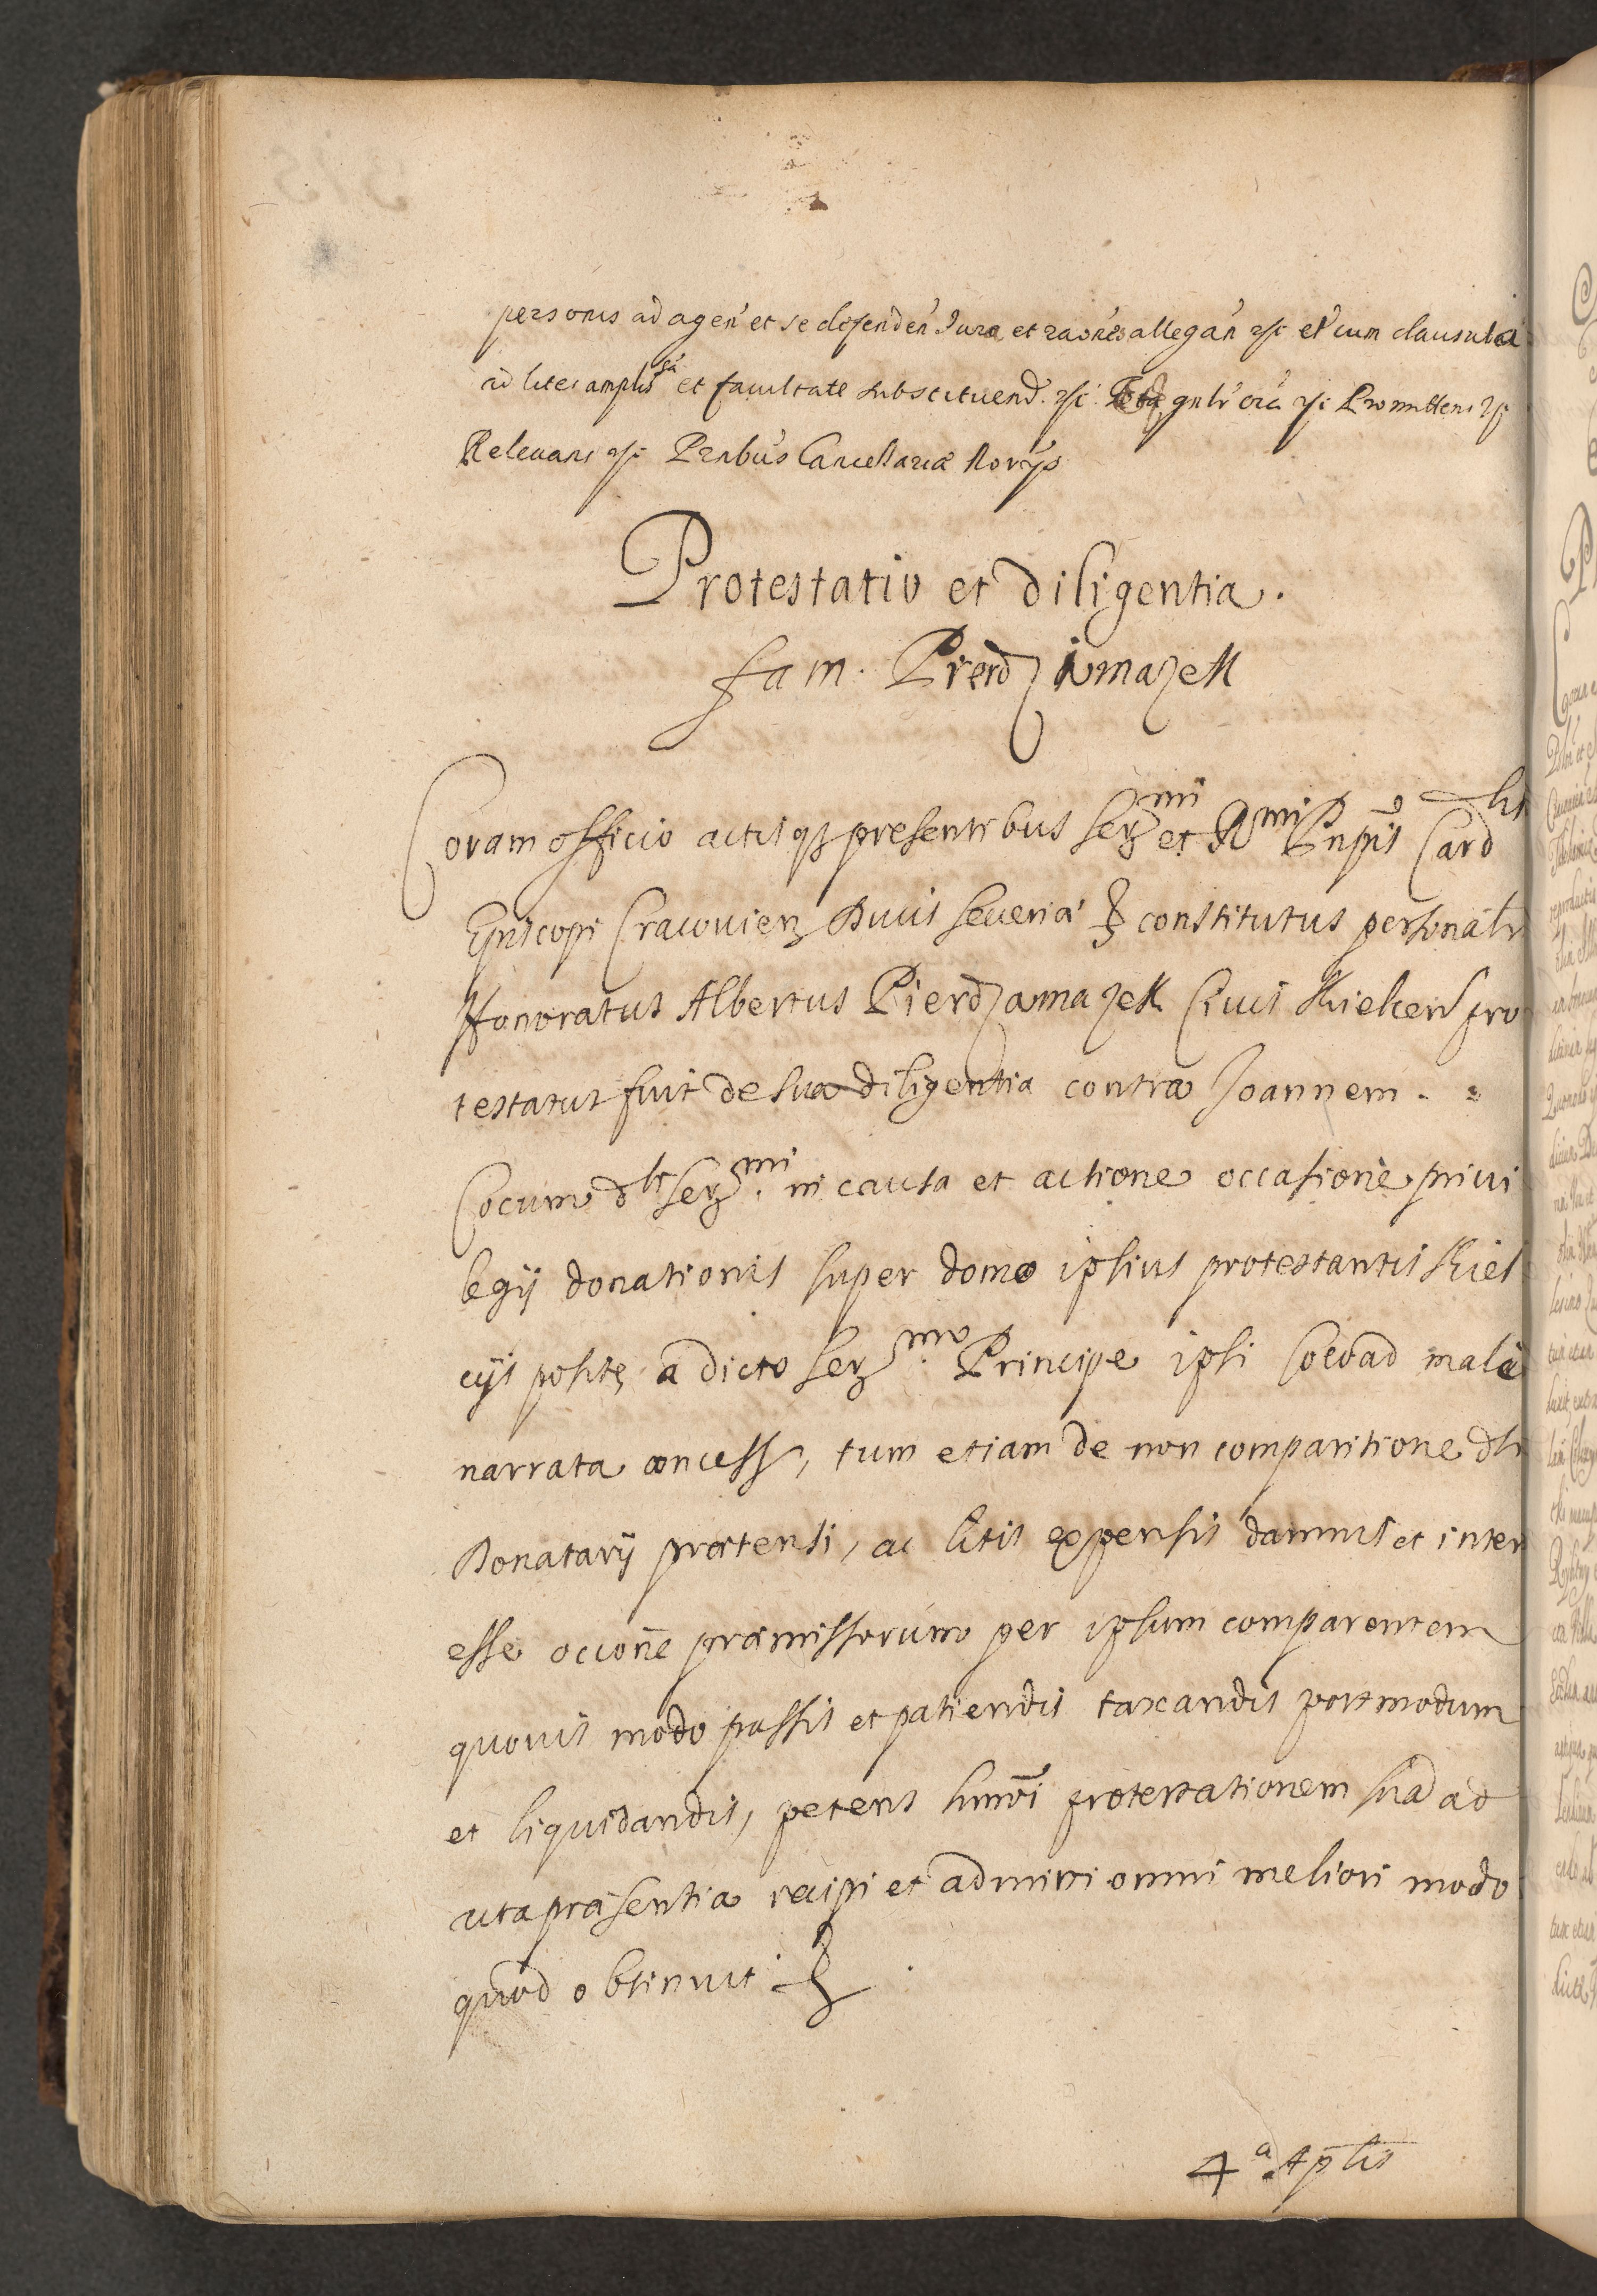 personis ad agen̄ et se defenden̄ Iura et ra͠ones allegan̄ etc et cum clausula
ad lites amplisṡã et facultate substituend. etc gn͠lr o͠ia etc Promittens etc
Relevans etc P͠ntibus Cancellariæ Norijs
Protestatio et diligentia.
fam. Pierdzimazek
Coram officio actisq3 presentibus Ser^mi et R^mi P͠npis Card^lis
Episcopi Cracovien Ducis Severiæ etc constitutus personalr
Honoratus Albertus Pierdzamazek Civis Kielcen pro
testatus fuit de sua diligentia contra Joannem
Cocum d͠ti Ser^mi in causa et actione occasione privi
legij donationis super domo ipsius protestantis Kiel
cijs positę a dicto Ser^mo Principe ipsi Coco ad malè
narrata concess, tum etiam de non comparitione d͠ti
Donatarij prætensi, ac litis expensis damnis et inter
esse occio͠ne præmissorum per ipsum comparentem
quovis modo passis et patiendis taxandis postmodum
et liquidandis, petens hmo͠i protestationem suã ad
acta præsentia recipi et admitti omni meliori modo
quod obtinuit etc
4^a Aplis